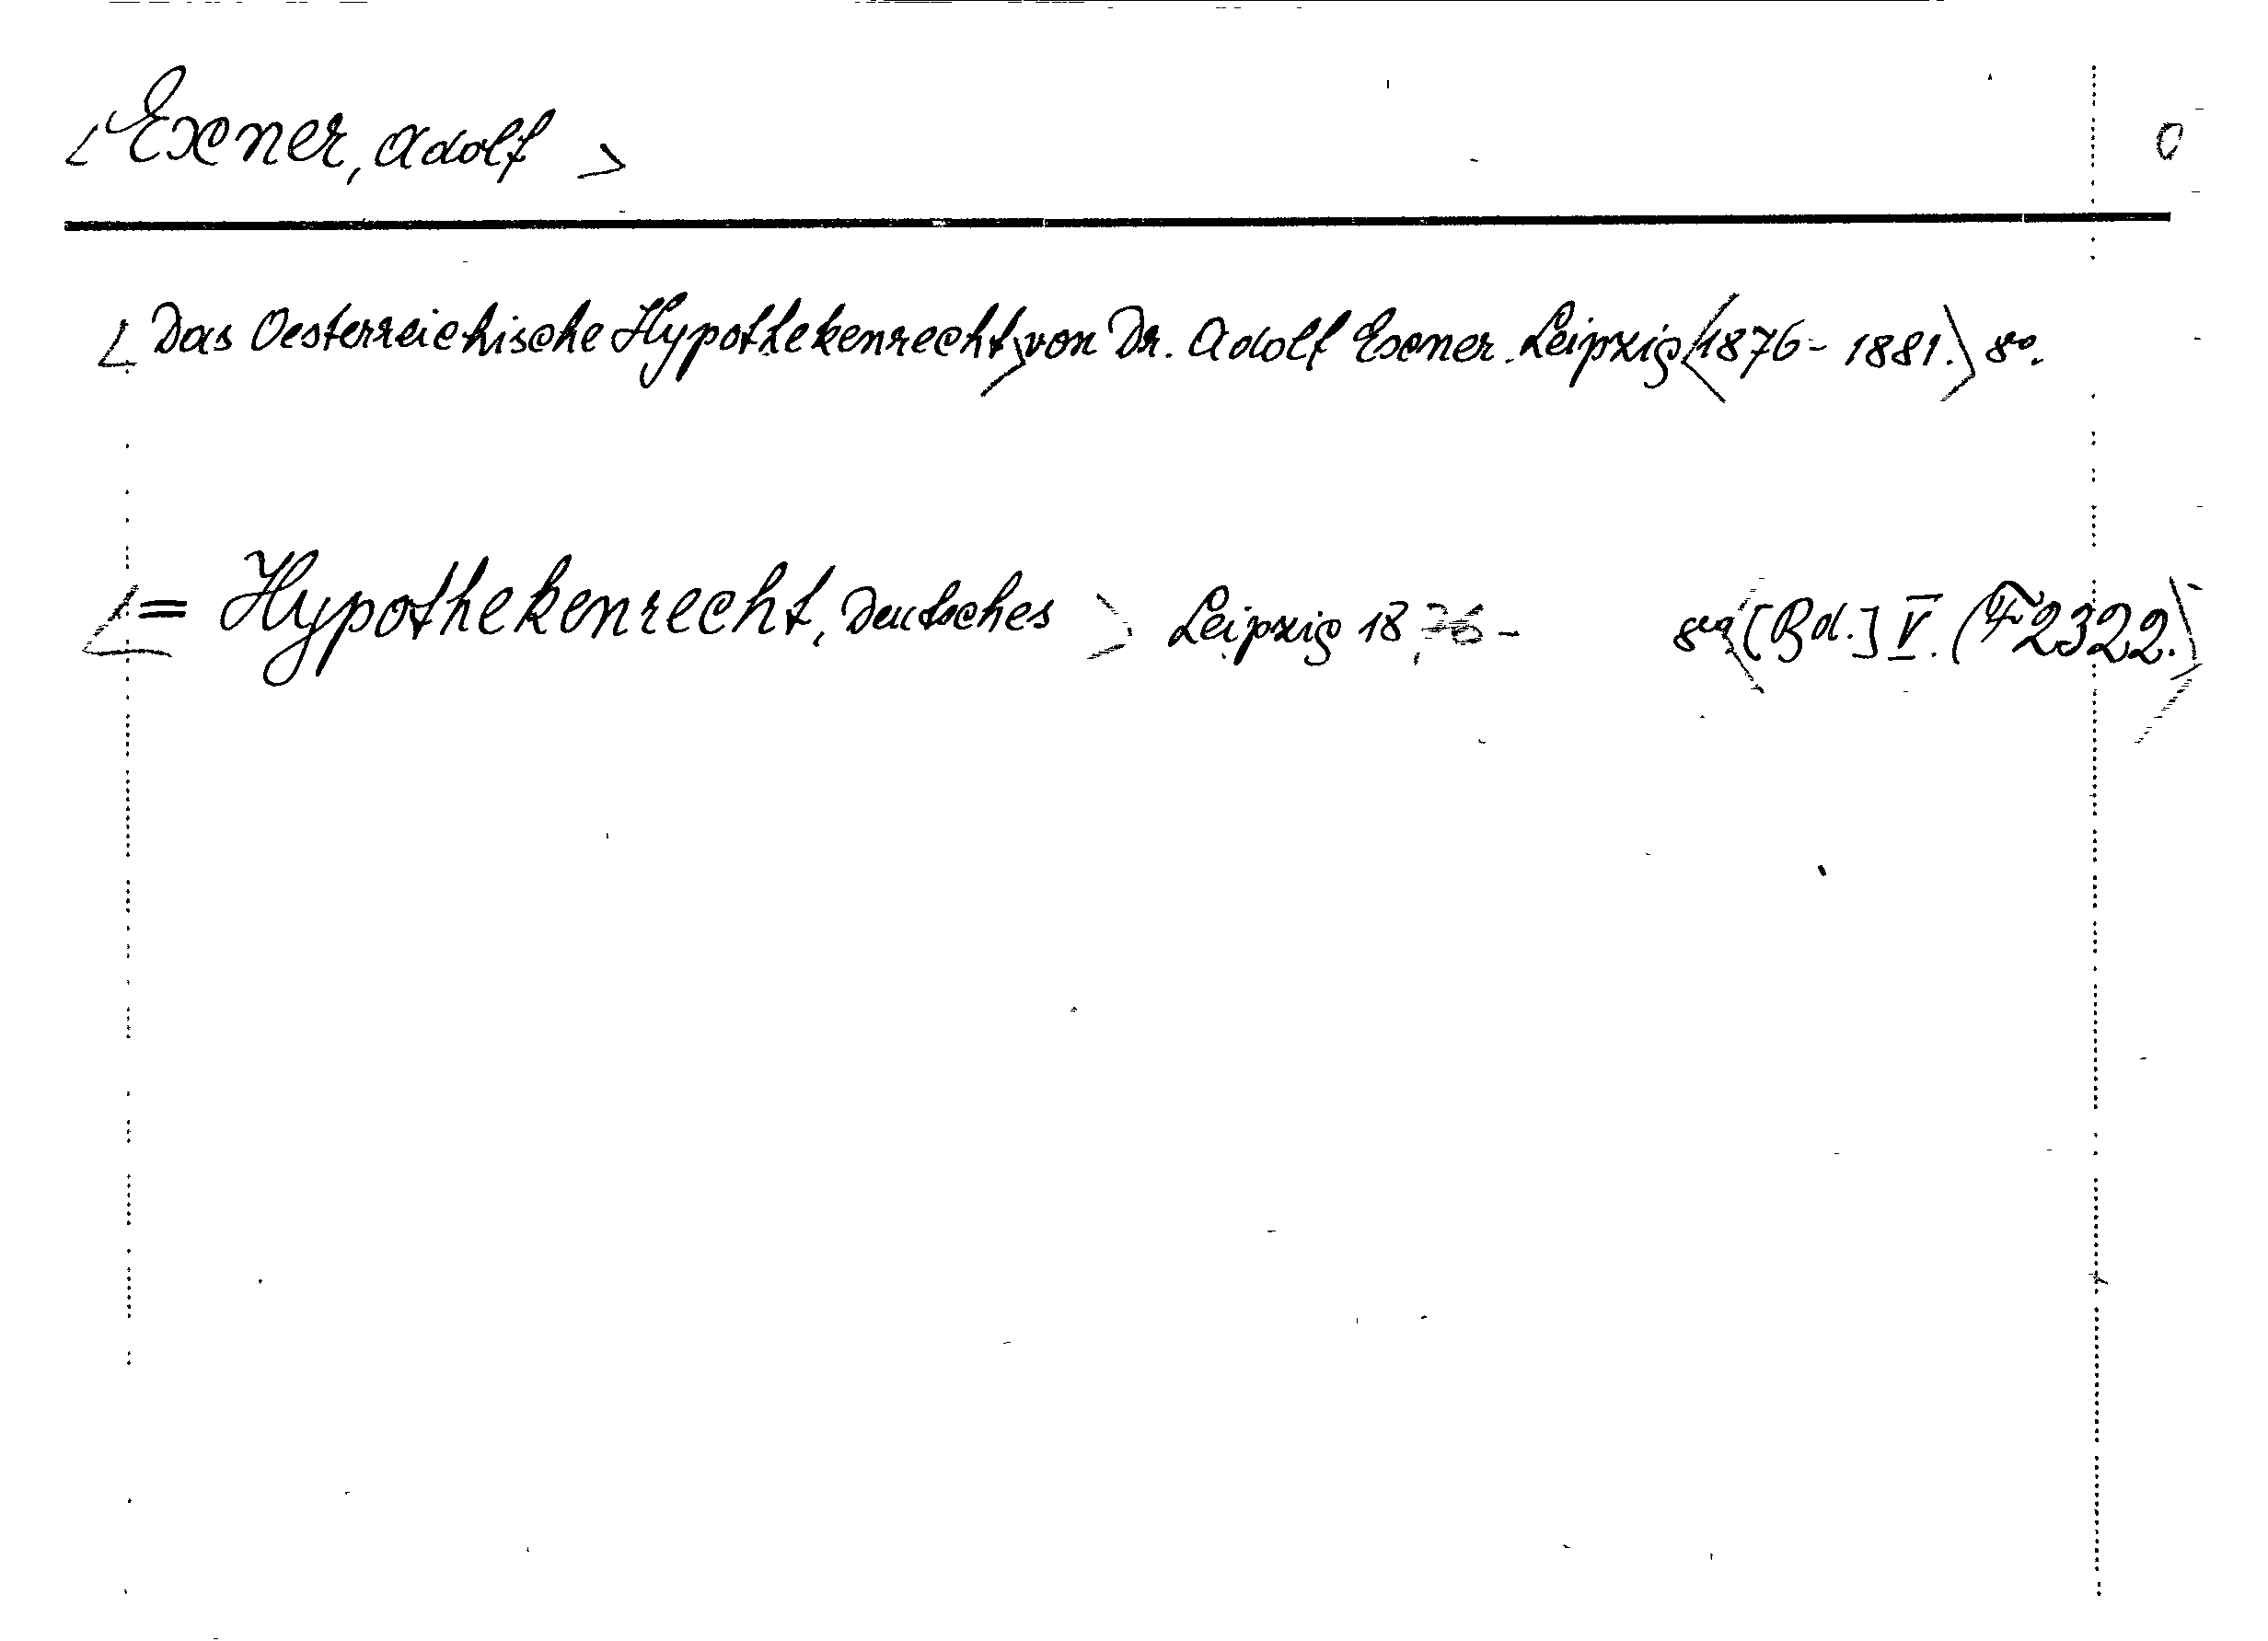 <Exner, Adolf> 0
<Das Oesterreichische Hypothekenrecht> von Dr. Adolf Exner. Leipzig <1876-1881.> 8º.
<= Hypothekenrecht, Deutsches> Leipzig 1876- 8º <[Bd.] V. (F 2322.)>